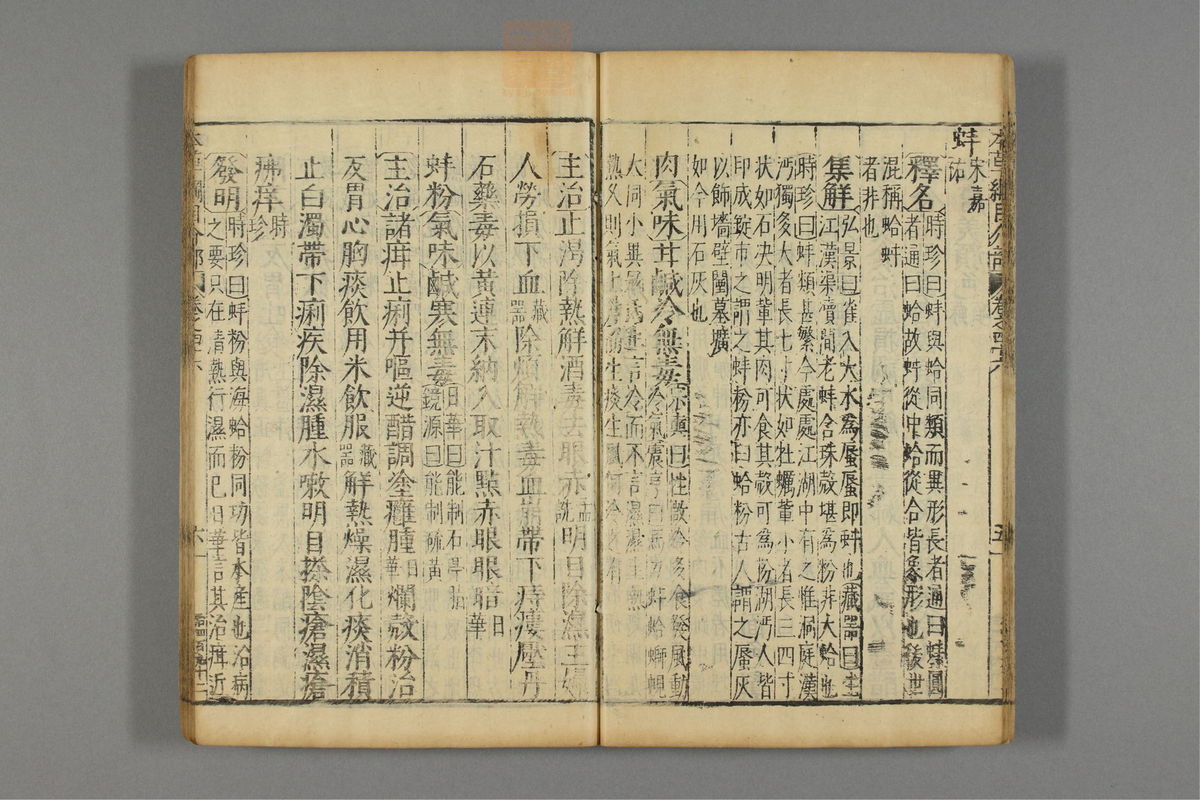 蚌 宋嘉祐
釋名 時珍曰蚌與蛤同類而異形長者通曰蚌圓
者通曰蛤故蚌從中蛤從合皆象形也後世
混稱蛤蚌
者非也
集解 弘景曰雀入大水為蜃蜃即蚌也藏器曰生
江漢渠瀆間老蚌含珠殼堪為粉非大蛤也
時珍曰蚌類甚繁今處處江湖中有之惟洞庭漢
沔獨多大者長七寸狀如牡蠣輩小者長三四寸
狀如石決明輩其肉可食其殼可為粉湖沔人皆
印成錠市之謂之蚌粉亦曰蛤粉古人謂之蜃灰
以飾墻壁闉墓壙
如今用石灰也
肉氣味甘鹹冷無毒 宗奭曰性微冷多食發風動
冷氣震亨曰馬刀蚌蛤螄蜆
大同小異寇氏止言冷而不言濕濕生熱
熱久則氣上升而生痰生風何冷之有
主治止渴除熱解酒毒去眼赤 孟詵 明目除濕主婦
人勞損下血 藏器 除煩解熱毒血崩帶下痔瘻壓丹
石藥毒以黃連末納入取汁點赤眼眼暗 日華
蚌粉氣味鹹寒無毒 日華曰能制石亭脂
鏡源曰能制硫黃
主治諸疳止痢并嘔逆醋調塗癰腫 日華 爛殼粉治
反胃心胸痰飲用米飲服 藏器 解熱燥濕化痰消積
止白濁帶下痢疾除濕腫水嗽明目搽陰瘡濕瘡
疿痒 時珍
發明 時珍曰蚌粉與海蛤粉同功皆水產也治病
之要只在清熱行濕而已日華言其治疳近